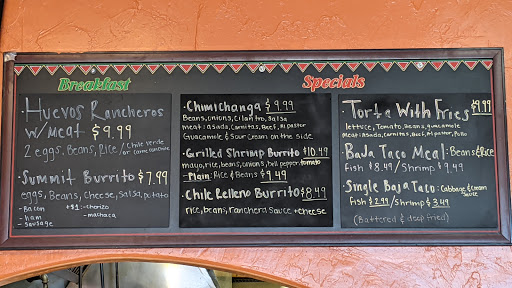 Breakfast
·Huevos Rancheros
w/meat $9.99
2 eggs, Beans, Rice / Chile verde
or carne ranchera
·Summit Burrito $7.99
eggs, Beans, cheese, salsa, potato
- Bacon
- ham
- Sausage
+$1: -chorizo
-machaca
Specials
·Chimichanga $9.99
Beans, onions, cilantro, salsa
meat: Asada, Carnitas, Beef, Al pastor
Guacamole & Sour Cream on the side
·Grilled Shrimp Burrito $10.49
mayo, rice, beans, onions, bell pepper, tomato
-Plain: Rice & Beans $9.49
·Chile Relleno Burrito $8.49
rice, beans, ranchera sauce +cheese
·Torta With Fries $9.99
lettuce, Tomato, Beans, guacamole
meat: Asada, Carnitas, Beef, Al pastor, Pollo
·Baja Taco Meal: Beans & Rice
Fish $8.49 / Shrimp $9.49
·Single Baja Taco: Cabbage & Cream
Sauce
Fish $2.99 / Shrimp $3.49
(Battered & deep fried)